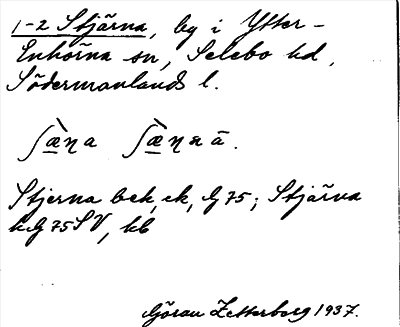 1-2 Stjärna, by i Ytter-
Enhörna sn, Selebo hd,
Södermanlands l.
ʃæ̀ŋa ʃæ̀ŋaā.
Stjerna bek, ek, G 75; Stjärna
kG 75 SV, kb
Göran Zetterborg 1937.